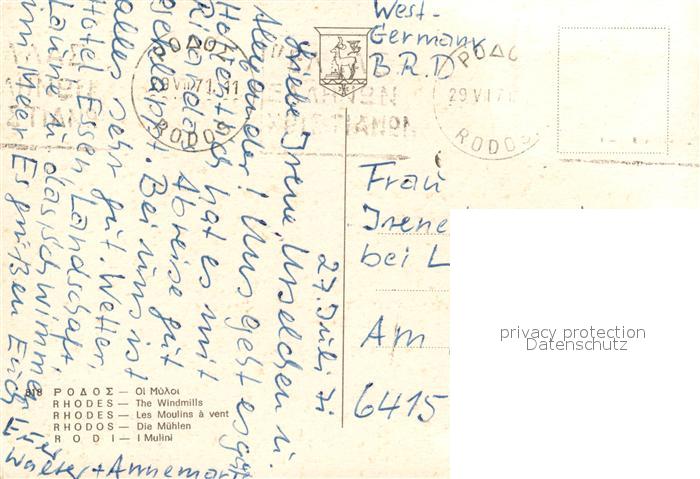 27. Juli 71
Liebe Irene, Urselchen u.
Alexander! Uns geht es gut
Hoffentlich hat es mit
Abreise gut
geklappt. Bei uns ist
alles sehr gut. Wetter,
Hotel Essen, Landschaft
Laune u. das Schwimmen
im Meer Es grüßen Euch
Eure
Walter + Annemarie
West-
Germany
B.R.D
ΡΟΔΟΣ
29 VII 71. 11
RODOS
ΡΟΔΟΣ
29 VII 71
RODOS
Frau
Irene
bei L
Am
6415
818 ΡΟΔΟΣ — Οἱ Μύλοι
RHODES — The Windmills
RHODES — Les Moulins à vent
RHODOS — Die Mühlen
RODI — I Mulini
privacy protection
Datenschutz